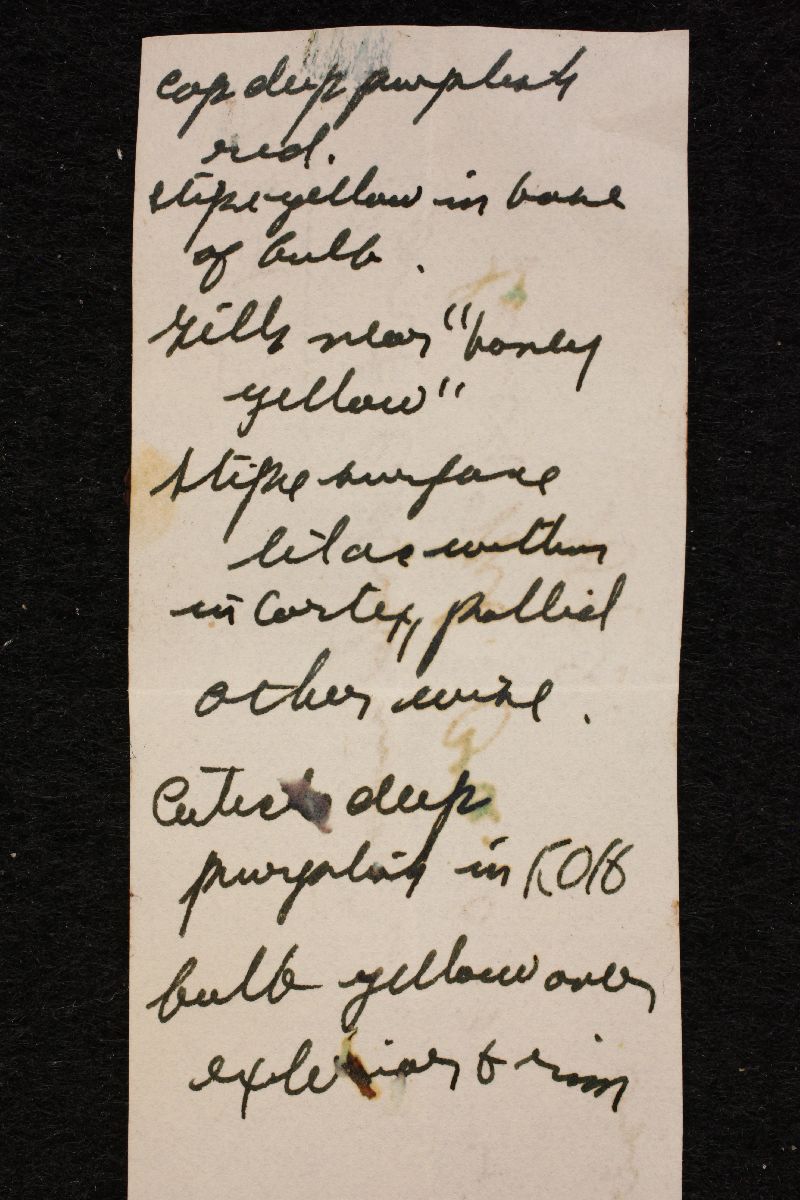 cap deep purplish
red.
stipe yellow in base
of bulb.
Gills near "honey
yellow"
stipe surface
lilac within
in cortex, pallid
otherwise.
Cuticle deep
purplish in KOH
bulb yellow over
exterior & rim